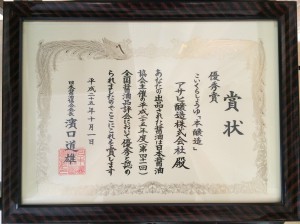 賞状
優秀賞
こいくちしょうゆ「本醸造」
アサヒ醸造株式会社 殿
あなたの出品された醤油は日本醤油
協会主催の平成二十五年度(第四十一回)
全国醤油品評会において優秀と認め
られましたのでここにこれを賞します
平成二十五年十月一日
日本醤油協会会長 濱口道雄